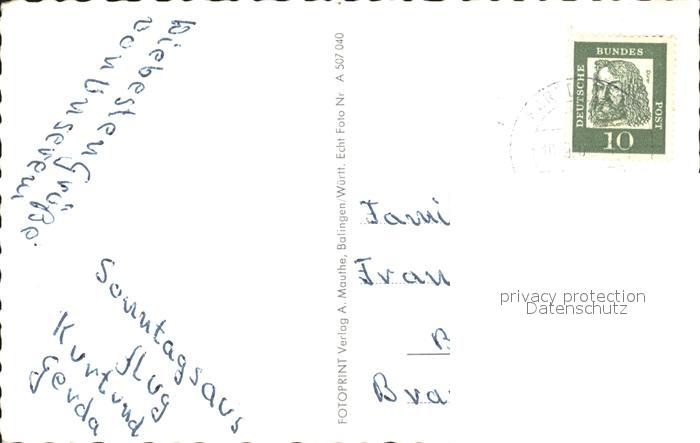 Liebesten Grüße
von Unserem
Sonntagsaus
flug
Kurt und
Gerda
FOTOPRINT Verlag A. Mauthe, Balingen/Württ. Echt Foto Nr A 507 040
DEUTSCHE BUNDES POST
Dürer
10
Fami
Fran
Bra
privacy protection
Datenschutz